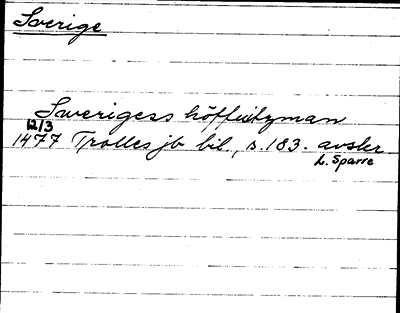 Sverige
Swerigess höffuitzman
12/3
1477 Trolles jb bil., s. 183. avskr
L. Sparre